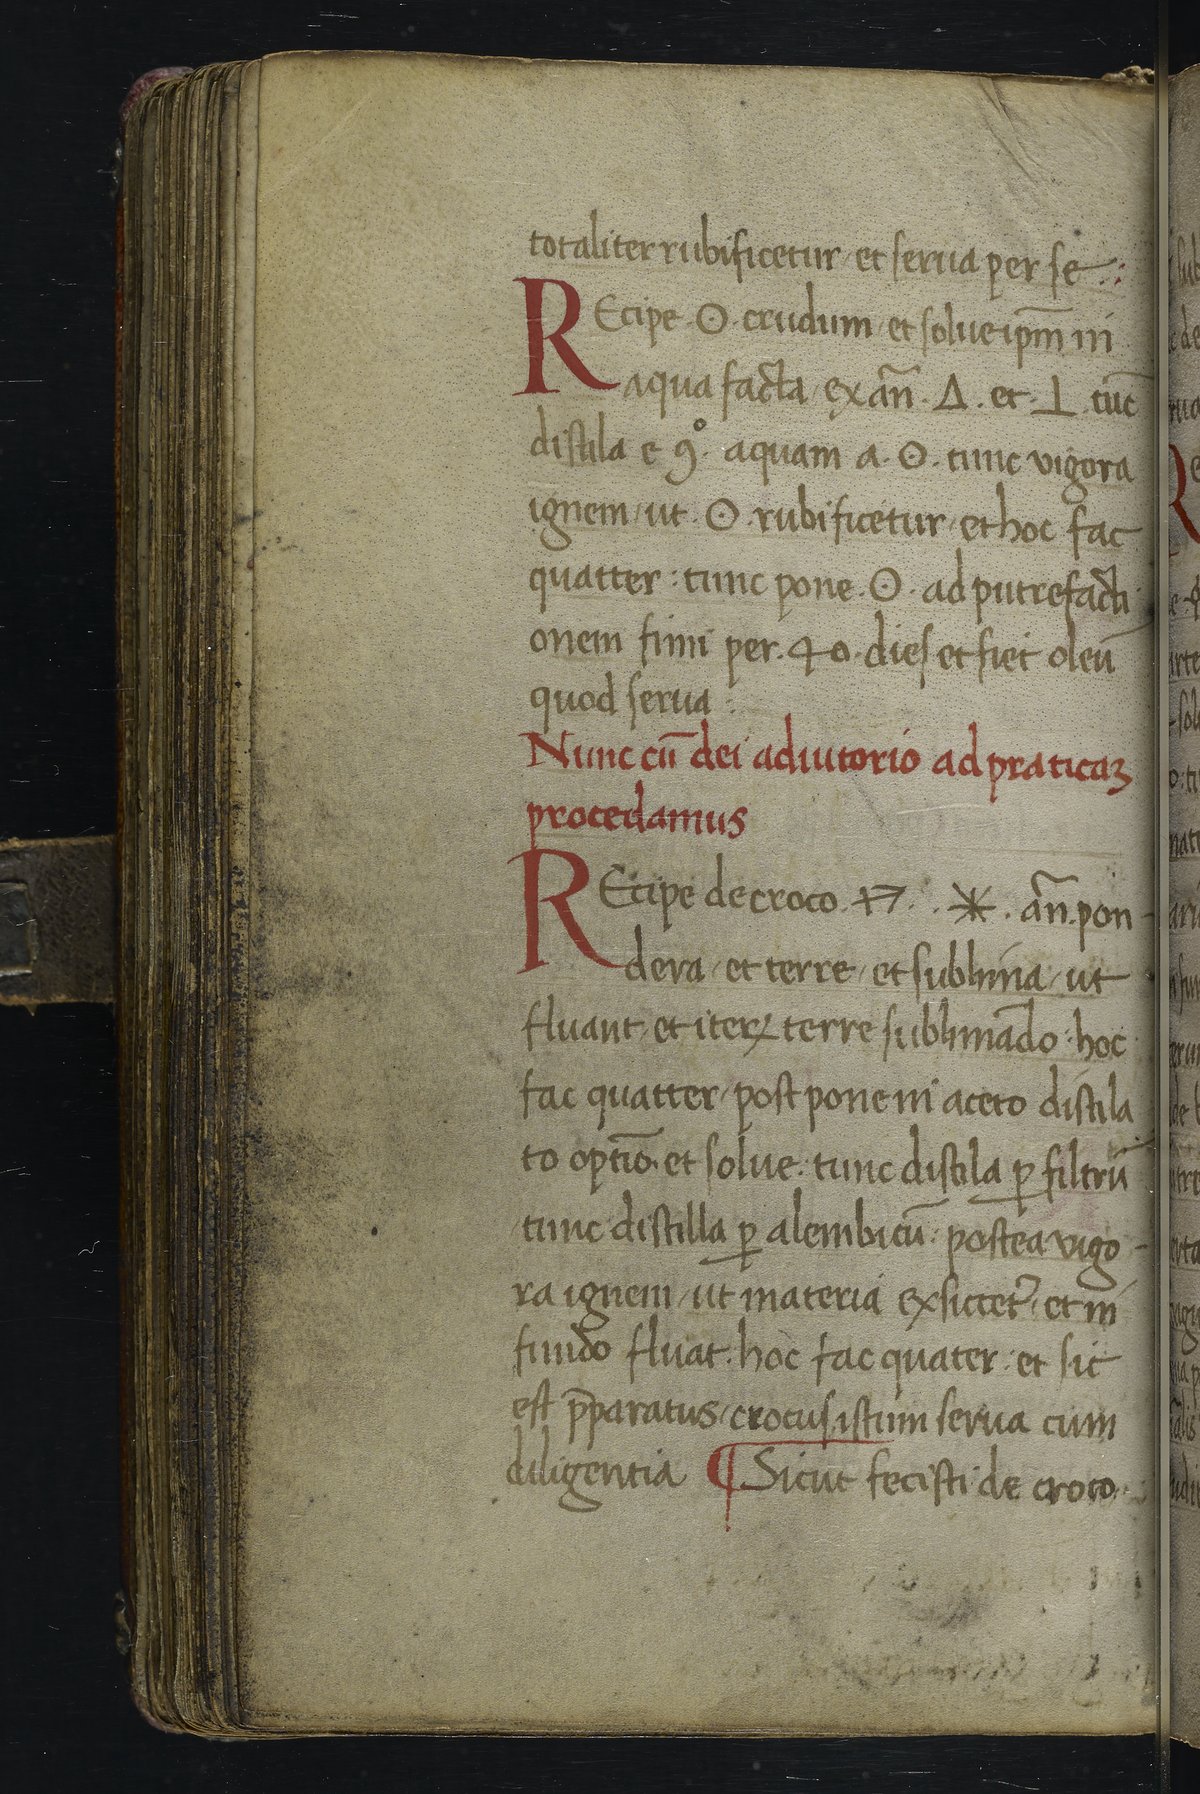 totaliter rubificetur / et serua per se .:
REcipe . ☉ . crudum / et solue ip̃m in
aqua facta / ex añ . Δ . et . ⊥ . tũc
distila e 9° . aquam a . ☉ . tunc vigora
ignem / ut . ☉ . rubificetur / et hoc fac
quatter : tunc pone . ☉ . ad putrefacti
onem fimi per . 40 . dies et fiet oleũ
quod serua :
Nunc cũ dei adiutorio ad praticaꝫ
procedamus
REcipe de croco . . . ⚹ . añ . pon-
dera / et terre / et sublima / ut
fluant / et iterꝝ terre sublimãdo : hoc
fac quatter / post pone in aceto distila
to optĩo . et solue : tunc distila ꝑ filtrũ
tunc distilla ꝑ alembicũ : postea vigo-
ra ignem / ut materia exsiccet᷑ / et in
fundo fluat . hoc fac quater : et sic
est p̃paratus / crocus . istum serua cum
diligentia ¶ Sicut fecisti de croco .